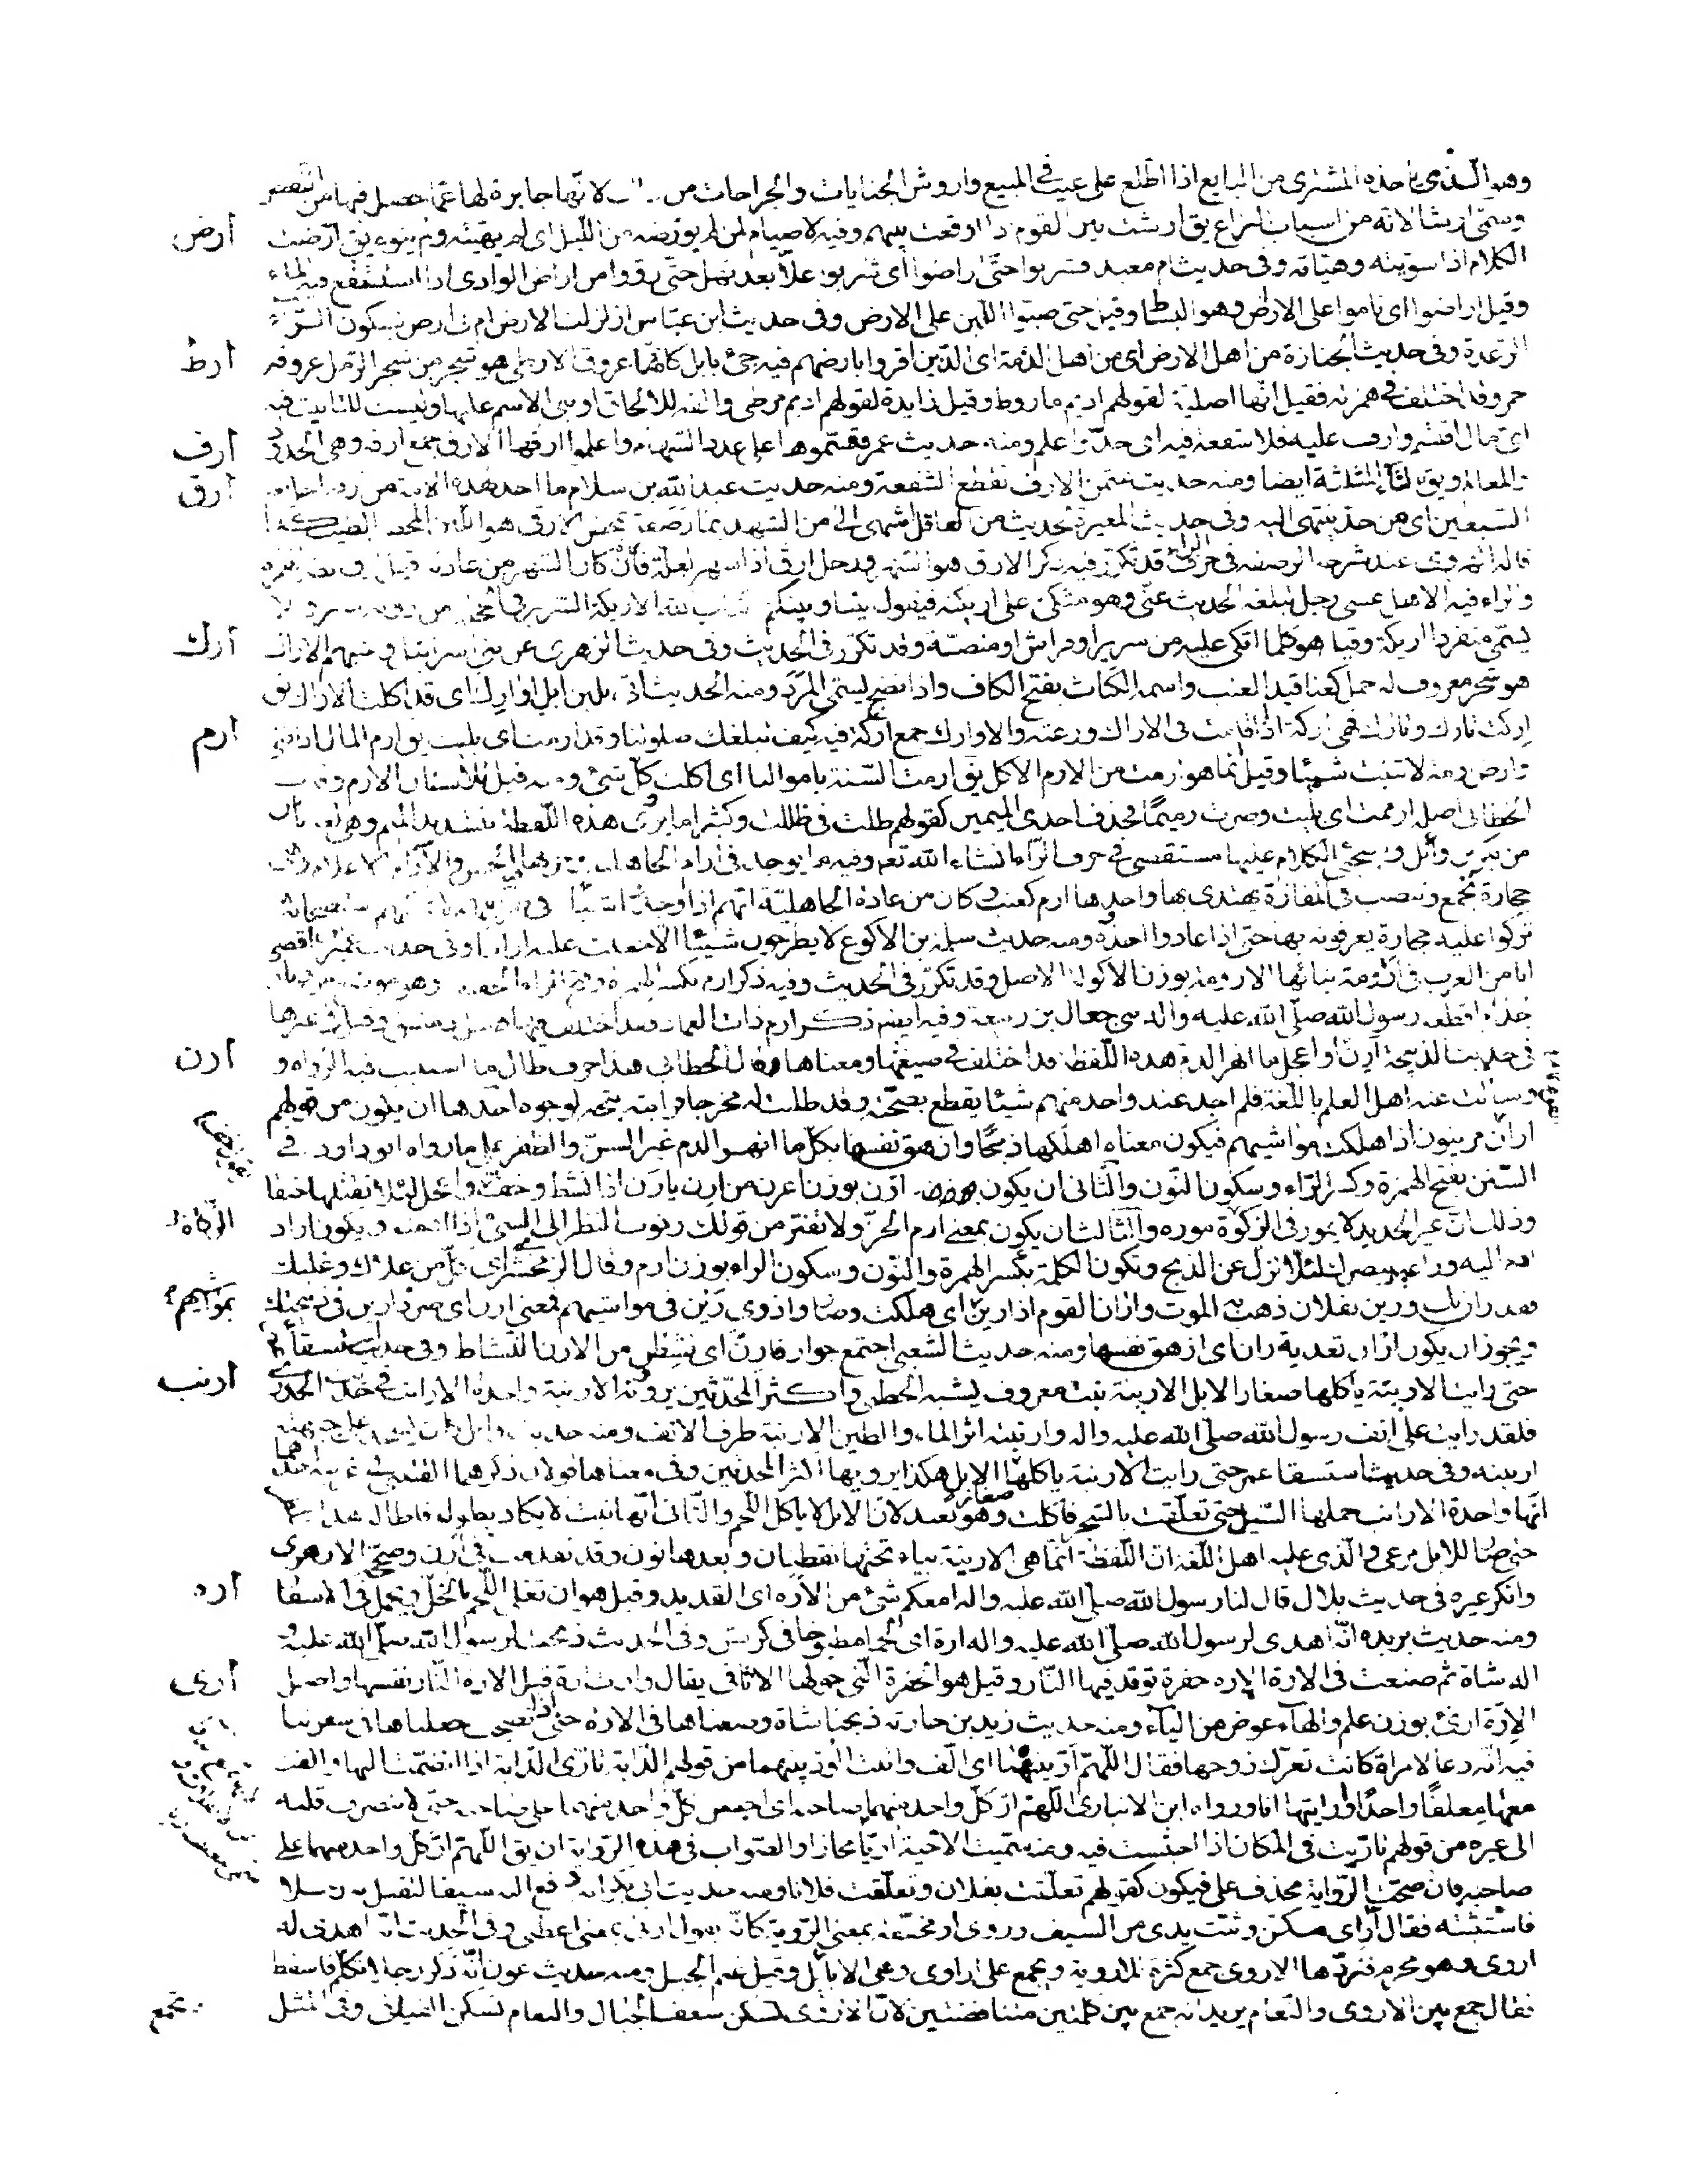 وهو الّذى ياخذه المشترى من البايع اذا اطّلع على عيب فى المبيع واروش الجنايات والجراحات من لانّها جابرة لها عمّا حصل فيها من النقص
وسمّى ارشا لانه من اسباب النزاع يق ارشت بين القوم اذا اوقعت بينهم وفيه لاصيام لمن لم يؤرّضه من اللّيل اى لم يهيّئه ولم ينوه يق ارّضت
أرض
الكلام اذا سوّيته وهيّاته وفى حديث ام معبد فشربوا حتّى اراضوا اى شربوا عللا بعد نهل حتّى رووا من اراض الوادى اذا استنقع فيه الماء
وقيل اراضوا اى ناموا على الارض وهو البساط وقيل حتى صبّوا اللّبن على الارض وفى حديث ابن عبّاس ازلزلت الارض ام بى ارض بسكون الرّاء
الرّعدة وفى حديث الجنازة من اهل الارض اى من اهل الذمّة اى الّذين اقرّوا بارضهم فيه جىء بابل كانّها عروق الارطى هو شجر من شجر الرّمل عروقه
أرط
حمر وقد اختلف فى همزته فقيل انّها اصليّة لقولهم اديم ماروط وقيل زايدة لقولهم اديم مرطى والفه للالحاق او بنى الاسم عليها وليست للتانيث فيه
اىّ مال اقتسم وارّف عليه فلا شفعة فيه اى حدّ واعلم ومنه حديث عمر فقسّموها على عدد السّهام واعلموا ارفها الارف جمع ارفه وهى الحدود
أرف
والمعالم ويق بالثاء المثلثة ايضا ومنه حديث عثمن الارف تقطع الشفعة ومنه حديث عبد الله بن سلام ما اجد لهذه الامة من
أرق
السّبعين اى من حدّ ينتهى اليه وفى حديث المغيرة لحديث من العاقل اشهى الىّ من الشّهد بماء رصفة بمحض الارفى هو اللّبن المحض الطيّب كذا
قاله الهروى عند شرحه الرصفة فى حرف الراء قد تكرّر فيه ذكر الارق وهو السّهر ورجل ارق اذا سهر لعلّة فان كان السّهر من عادته قيل
والراء فيه الا هل عسى رجل يبلغه الحديث عنّى وهو متّكئ على اريكته فيقول بيننا وبينكم كتاب الله الاريكة السّرير فى الحجلة من دونه ستر ولا
يسمّى منفردا اريكة وقيل هو كلّما اتّكى عليه من سرير او فراش او منصّة وقد تكرّر فى الحديث وفى حديث الزهرى عن بنى اسرائيل وعنبهم الاراك
أرك
هو شجر معروف له حمل كعناقيد العنب واسمه الكباث بفتح الكاف واذا نضج يسمّى المرد ومنه الحديث اتى بلبن ابل اوارك اى قد اكلت الاراك يق
اركت تارك وتارك فهى اركة اذا اقامت فى الاراك ورعته والاوارك جمع اركة فيه كيف تبلغك صلوتنا وقد ارمت اى بليت يق ارم المال اذا فنى
أرم
وارض ارمة لا تنبت شيئا وقيل انّما هو ارمت من الارم الاكل يق ارمت السّنة باموالنا اى اكلت كلّ شىء ومنه قيل للاسنان الارم وقال
الخطابى اصله ارممت اى بليت وصرت رميمًا فحذف احدى الميمين كقولهم ظلت فى ظللت وكثيرا ما يروى هذه اللّفظة بتشديد الميم وهى لغة ناس
من بكر بن وائل وسيجئ الكلام عليها مستقصى فى حرف الرّاء انشاء الله تعم وفيه ما يوجد فى ارام الجاهلية وخربها فيه الخمس والآرام الاعلام وهى
حجارة تجمع وتنصب فى المفازة يهتدى بها واحدها ارم كعنب وكان من عادة الجاهليّة انّهم اذا وجدوا شيئا فى طريقهم
تركوا عليه حجارة يعرفونه بها حتى اذا عادوا اخذوه ومنه حديث سلمة بن الاكوع لا يطرحون شيئا الا جعلت عليه اراما وفى حديث عمير بن افصى
انا من العرب فى ارومة بنائها الارومة بوزن الاكولة الاصل وقد تكرّر فى الحديث وفيه ذكر ارم بكسر الهمزة وفتح الراء الخفيفة وهو موضع من ديار
جذام اقطعه رسول الله صلّى الله عليه واله بنى جعال بن ربيعة وفيه ايضا ذكر ارم ذات العماد وقد اختلف فيها فقيل دمشق وقيل غيرها
فى حديث الذبيحة ارن او اعجل ما انهر الدم هذه اللّفظة قد اختلف فى صيغتها ومعناها قال الخطابى هذا حرف طال ما استثبت فيه الرّواة و
أرن
وسالت عنه اهل العلم باللّغة فلم اجد عند واحد منهم شيئا يقطع بصحّته وقد طلبت له مخرجا فرايته يتّجه لوجوه احدها ان يكون من قولهم
اران القوم فهم مرينون اذا هلكت مواشيهم فيكون معناه اهلكها ذبحًا وازهق نفسها بكلّ ما انهر الدم غير السنّ والظفر على ما رواه ابو داود فى
السّنن بفتح الهمزة وكسر الرّاء وسكون النّون والثانى ان يكون ائرن بوزن اعرن من ارن يارن اذا نشط وخفّ واعجل لئلا تقتلها خنقا
وذلك انّ غير الحديد لا يمور فى الزكوة موره والثالث ان يكون بمعنى ادم الحزّ ولا تفتر من قولك رنوت النظر الى الشىء اذا ادمته او يكون اراد
ادم النظر اليه وراعه ببصرك لئلا تزل عن الذبح وتكون الكلمة بكسر الهمزة والنّون وسكون الراء بوزن ارم وقال الزمخشرى كلّ من علاك وغلبك
فقد ران بك ورين بفلان ذهب به الموت واران القوم اذا رين اى هلكت وصاروا ذوى رين فى مواشيهم فمعنى ارن اى صر ذا رين فى ذبيحتك
بمواشيهم
ويجوز ان يكون اران تعدية ران اى ازهق نفسها ومنه حديث الشعبى اجتمع جوار فارنّ اى نشطن من الارن النّشاط وفى حديث استسقاء
حتى رايت الارينة ياكلها صغار الابل الارينة نبت معروف يشبه الخطمى واكثر المحدّثين يروونه الارنبة واحدة الارانب فى حديث الخدرى
أرنب
فلقد رايت على انف رسول الله صلّى الله عليه واله وارنبته اثر الماء والطين الارنبة طرف الانف ومنه حديث وائل كان يسجد على جبهته
ارنبته وفى حديث استسقاء عمر حتى رايت الارنبة ياكلها صغار الابل هكذا يرويها اكثر المحدثين وفى معناها قولان ذكرهما القتيبى فى غريبه احدهما
انّها واحدة الارانب حملها السّيل حتى تعلّقت بالشّجر فاكلت وهو بعيد لانّ الابل لا ياكل اللّحم والثّانى انّها نبت لا يكاد يطول فاطاله هذا
حتى صار للابل مرعى والّذى عليه اهل اللّغة انّ اللّفظة انّما هى الارينة بياء تحتها نقطتان وبعدها نون وقد تقدّمت فى ارن وصحّحه الازهرى
وانكر غيره فى حديث بلال قال لنا رسول الله صلّى الله عليه واله امعكم شىء من الاره اى القديد وقيل هو ان تغلى اللّحم بالخلّ ويحمل فى الاسفار
أره
ومنه حديث بريده انّه اهدى لرسول الله صلّى الله عليه واله ارة اى لحما مطبوخا فى كرش وفى الحديث ذبحت لرسول الله صلّى الله عليه و
اله شاة ثم صنعت فى الارة الاره حفرة توقد فيها النّار وقيل هو الحفرة الّتى حولها الاثافى يقال وارت ارة قيل الاره النّار نفسها واصل
أرى
الارة ارى بوزن علم والهاء عوض من الياء ومنه حديث زيد بن حارثه ذبحنا شاة وصنعناها فى الارة حتى اذا نضجت جعلناها فى سفرتنا
فيه انّه دعا لامراة كانت تعرك زوجها فقال اللّهمّ ارّ بينهما اى الّف واثبت الودّ بينهما من قولهم الدّابة تارى الدّابة اذا انضمّت اليها والفت
معها معلفًا واحدًا واريتها انا ورواه ابن الانبارى اللّهمّ ارّ كلّ واحد منهما صاحبه اى احبس كلّ واحد منهما على صاحبه حتى لا ينصرف قلبه
الى غيره من قولهم تارّيت فى المكان اذا احتبست فيه ومنه سمّيت الاخية اريّا مجازا والصّواب فى هذه الرّواية ان يق اللّهمّ ارّ كلّ واحد منهما على
صاحبه فان صحّت الرّواية بحذف على فيكون كقولهم تعلّقت بفلان وتعلّقت فلانا ومنه حديث ابى بكر انه دفع اليه سيفا ليقتل به رجلا
فاستثبته فقال ارّ اى مكّن وثبّت يدى من السيف وروى ار مخفّفة بمعنى الرّوية كانّه يقول ارنى بمعنى اعطنى وفى الحديث انّه اهدى له
اروى وهو محرم فردّها الاروى جمع كثرة للاروية وتجمع على اراوى وهى الايايل وقيل غنم الجبل ومنه حديث عون انّه ذكر رجلا تكلّم فاسقط
فقال جمع بين الاروى والنّعام يريد انه جمع بين كلمتين متناقضتين لانّ الاروى تسكن شعف الجبال والنعام تسكن الفيافى وفى المثل
تجمع